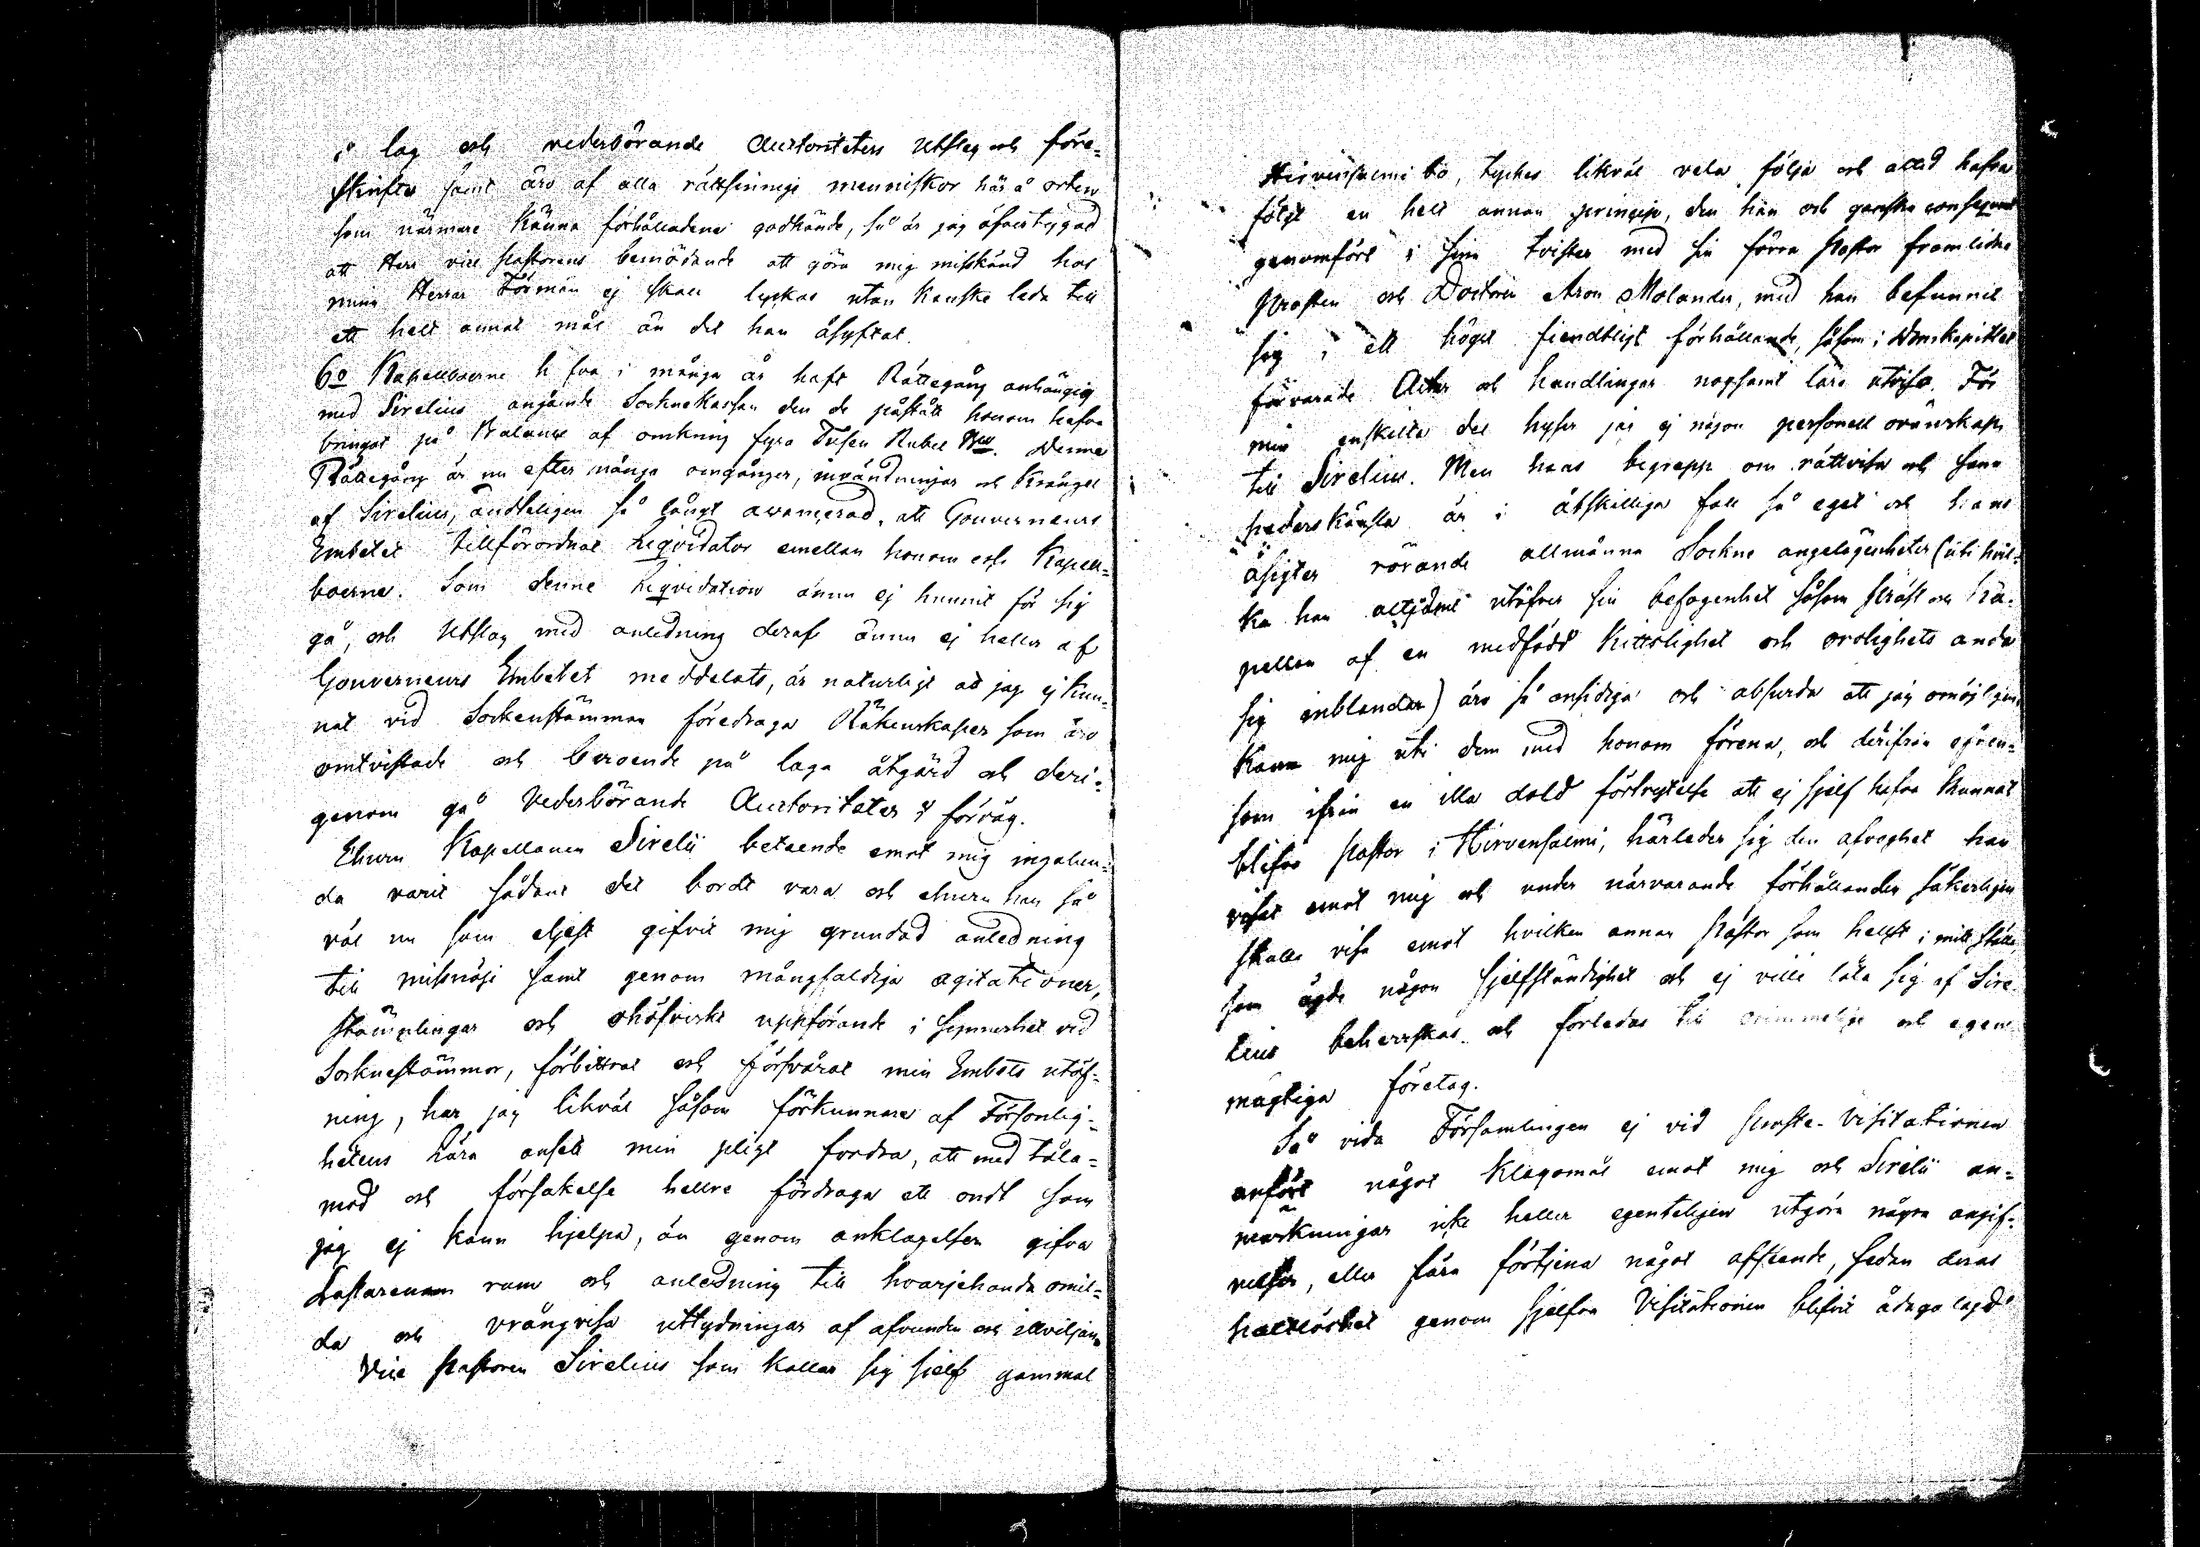 i lag och vederbörande Auctoriteters Utslag och före-
skrifter samt äro af alla rättsinnige menniskor här å orten
som närmare känna förhålladena godkände, så är jag öfvertygad
att Herr vice Pastorens bemödande att göra mig misskänd hos
mine Herrar Förmän ej skall lyckas utan kanske leda till
ett helt annat mål än det han åsyftat.
6o Kapellboerne hafva i många år haft Rättegång anhängig
med Sirelius angående Socknekassan den de påstått honom hafva
bringat på Balance af omkring fyra Tusen Rubel Denna
Rättegång är nu efter många omgånger, invändningar och krångel
af Sirelius, ändteligen så långt avancerad, att Gouverneurs
Embetet tillförordnat Liqvidator emellan honom och Kapell-
boerne. Som denne Liqvidation ännu ej hunnit för sig
gå, och Utslag med anledning deraf ännu ej heller af
Gouverneurs Embetet meddelats, är naturligt att jag ej kun-
nat vid Sockenstämman föredraga Räkenskaper som äro
omtvistade och beroende på laga åtgärd och deri-
genom gå Vederbörande Auctoriteter i förväg.
Ehuru Kapellanen Sirelii beteende emot mig ingalun-
da varit sådant det bordt vara och ehuru han så
väl nu som eljest gifvit mig grundad anledning
till missnöje samt genom mångfaldiga agitationer,
stämplingar och ohöfviskt uppförande i synnerhet vid
Socknestämmor, förbittrat och försvårat min Embets utöf-
ning, har jag likväl såsom förkunnare af Försonlig-
hetens Lära ansett min pligt fordra, att med tåla-
mod och försakelse hellre fördraga ett ondt som
jag ej kann hjelpa, än genom anklagelser gifva
Lastarenom rum och anledning till hvarjehanda omil-
da och vrångvisa uttydningar af afvunden och illviljan
Vice Pastoren Sirelius som kallar sig sjelf gammal
Hirvensalmi bo, tyckes likväl vela följa och alltid hafva
följt en helt annan princip, den han och ganska consequent
genomfört i sina tvister med sin förra Pastor framlidne
Prosten och Doctorn Aron Molander, med han befunnit
sig i ett högst fiendtligt förhållande, såsom i Domkapitlet
förvarade Acter och handlingar nogsamt lära utvisa. För
min enskilta del hyser jag ej någon personell ovänskap
till Sirelius. Men hans begrepp om rättvisa och sann
hederskänsla är i åtskilliga fall så eget och hans
åsigter rörande allmänna Sockne angelägenheter (uti hvil-
ka han alltjämt utöfver sin befogenhet såsom Präst och Ka-
pellan af en medfödd kittslighet och orolighets anda
sig inblandar) äro så ensidiga och absurda att jag omöjligen
kann mig uti dem med honom förena, och därifrån äfven-
som ifrån en illa dold förtrytelse att ej sjelf hafva kunnat
blifva Pastor i Hirvensalmi, härleder sig den afvoghet han
visat emot mig och under närvarande förhållanden säkerligen
skulle visa emot hvilken annan Pastor som helst i mitt ställe,
som ägde någon sjelfständighet och ej ville låta sig af Sire-
lius beherrskas och förledas till och egen-
mägtiga företag.
Så vida Församlingen ej vid Proste-Visitationen
anfört något klagomål emot mig och Sirelii an-
märkningar icke heller egenteligen utgöra några angif-
velser, eller lära förtjena något afseende, sedan deras
haltlöshet genom sjelfva Visitationen blifvit ådagalagd